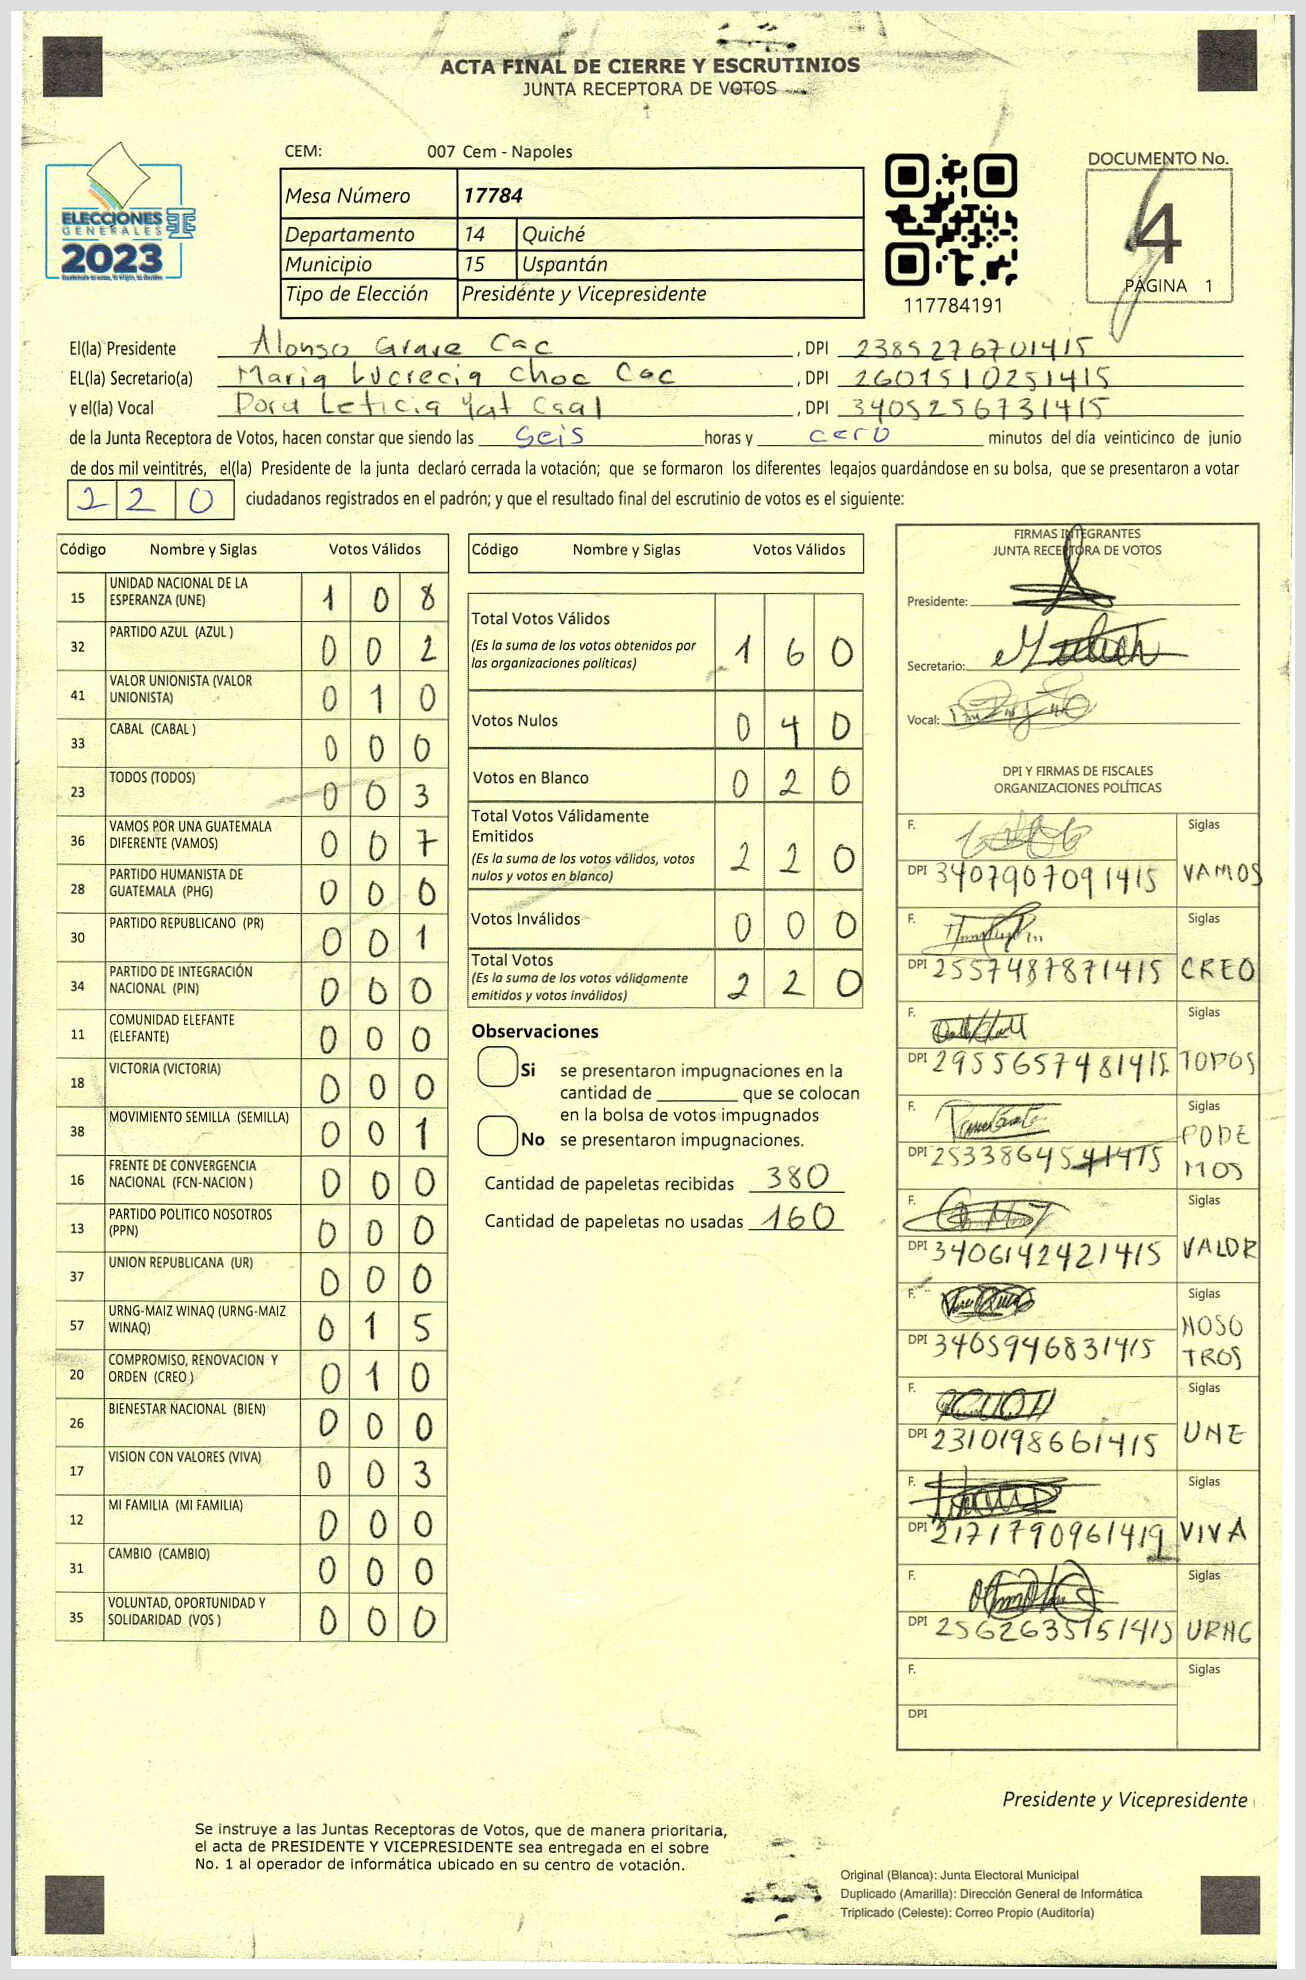 ACTA FINAL DE CIERRE Y ESCRUTINIOS
JUNTA RECEPTORA DE VOTOS
CEM: 007 Cem - Napoles
DOCUMENTO No.
4
PÁGINA 1
ELECCIONES
GENERALES
2023
Mesa Número 17784
Departamento 14 Quiché
Municipio 15 Uspantán
Tipo de Elección Presidente y Vicepresidente
117784191
El(la) Presidente Alonso Grave Cac , DPI 2385276701415
EL(la) Secretario(a) Maria Lucrecia Choc Cac , DPI 2601510251415
y el(la) Vocal Dora Leticia Yat Caal , DPI 3405256731415
de la Junta Receptora de Votos, hacen constar que siendo las seis horas y cero minutos del día veinticinco de junio
de dos mil veintitrés, el(la) Presidente de la junta declaró cerrada la votación; que se formaron los diferentes legajos guardándose en su bolsa, que se presentaron a votar
220 ciudadanos registrados en el padrón; y que el resultado final del escrutinio de votos es el siguiente:
Código Nombre y Siglas Votos Válidos
15 UNIDAD NACIONAL DE LA ESPERANZA (UNE) 1 0 8
32 PARTIDO AZUL (AZUL ) 0 0 2
41 VALOR UNIONISTA (VALOR UNIONISTA) 0 1 0
33 CABAL (CABAL ) 0 0 0
23 TODOS (TODOS) 0 0 3
36 VAMOS POR UNA GUATEMALA DIFERENTE (VAMOS) 0 0 7
28 PARTIDO HUMANISTA DE GUATEMALA (PHG) 0 0 0
30 PARTIDO REPUBLICANO (PR) 0 0 1
34 PARTIDO DE INTEGRACIÓN NACIONAL (PIN) 0 0 0
11 COMUNIDAD ELEFANTE (ELEFANTE) 0 0 0
18 VICTORIA (VICTORIA) 0 0 0
38 MOVIMIENTO SEMILLA (SEMILLA) 0 0 1
16 FRENTE DE CONVERGENCIA NACIONAL (FCN-NACION ) 0 0 0
13 PARTIDO POLITICO NOSOTROS (PPN) 0 0 0
37 UNION REPUBLICANA (UR) 0 0 0
57 URNG-MAIZ WINAQ (URNG-MAIZ WINAQ) 0 1 5
20 COMPROMISO, RENOVACION Y ORDEN (CREO ) 0 1 0
26 BIENESTAR NACIONAL (BIEN) 0 0 0
17 VISION CON VALORES (VIVA) 0 0 3
12 MI FAMILIA (MI FAMILIA) 0 0 0
31 CAMBIO (CAMBIO) 0 0 0
35 VOLUNTAD, OPORTUNIDAD Y SOLIDARIDAD (VOS ) 0 0 0
Código Nombre y Siglas Votos Válidos
Total Votos Válidos 1 6 0
(Es la suma de los votos obtenidos por
las organizaciones políticas)
Votos Nulos 0 4 0
Votos en Blanco 0 2 0
Total Votos Válidamente
Emitidos 2 2 0
(Es la suma de los votos válidos, votos
nulos y votos en blanco)
Votos Inválidos 0 0 0
Total Votos 2 2 0
(Es la suma de los votos válidamente
emitidos y votos inválidos)
Observaciones
Si se presentaron impugnaciones en la
cantidad de ________ que se colocan
en la bolsa de votos impugnados
No se presentaron impugnaciones.
Cantidad de papeletas recibidas 380
Cantidad de papeletas no usadas 160
FIRMAS INTEGRANTES
JUNTA RECEPTORA DE VOTOS
Presidente:
Secretario:
Vocal:
DPI Y FIRMAS DE FISCALES
ORGANIZACIONES POLÍTICAS
F. Siglas
DPI 3407907091415 VAMOS
F. Siglas
DPI 2557487871415 CREO
F. Siglas
DPI 2955657481415 TODOS
F. Siglas
DPI PODE
MOS
F. Siglas
DPI 3406142421415 VALOR
F. Siglas
DPI 3405946831415 NOSO
TROS
F. Siglas
DPI 2310198661415 UNE
F. Siglas
DPI 2171790961419 VIVA
F. Siglas
DPI 2562635151415 URNG
F. Siglas
DPI
Presidente y Vicepresidente
Se instruye a las Juntas Receptoras de Votos, que de manera prioritaria,
el acta de PRESIDENTE Y VICEPRESIDENTE sea entregada en el sobre
No. 1 al operador de informática ubicado en su centro de votación.
Original (Blanca): Junta Electoral Municipal
Duplicado (Amarilla): Dirección General de Informática
Triplicado (Celeste): Correo Propio (Auditoría)